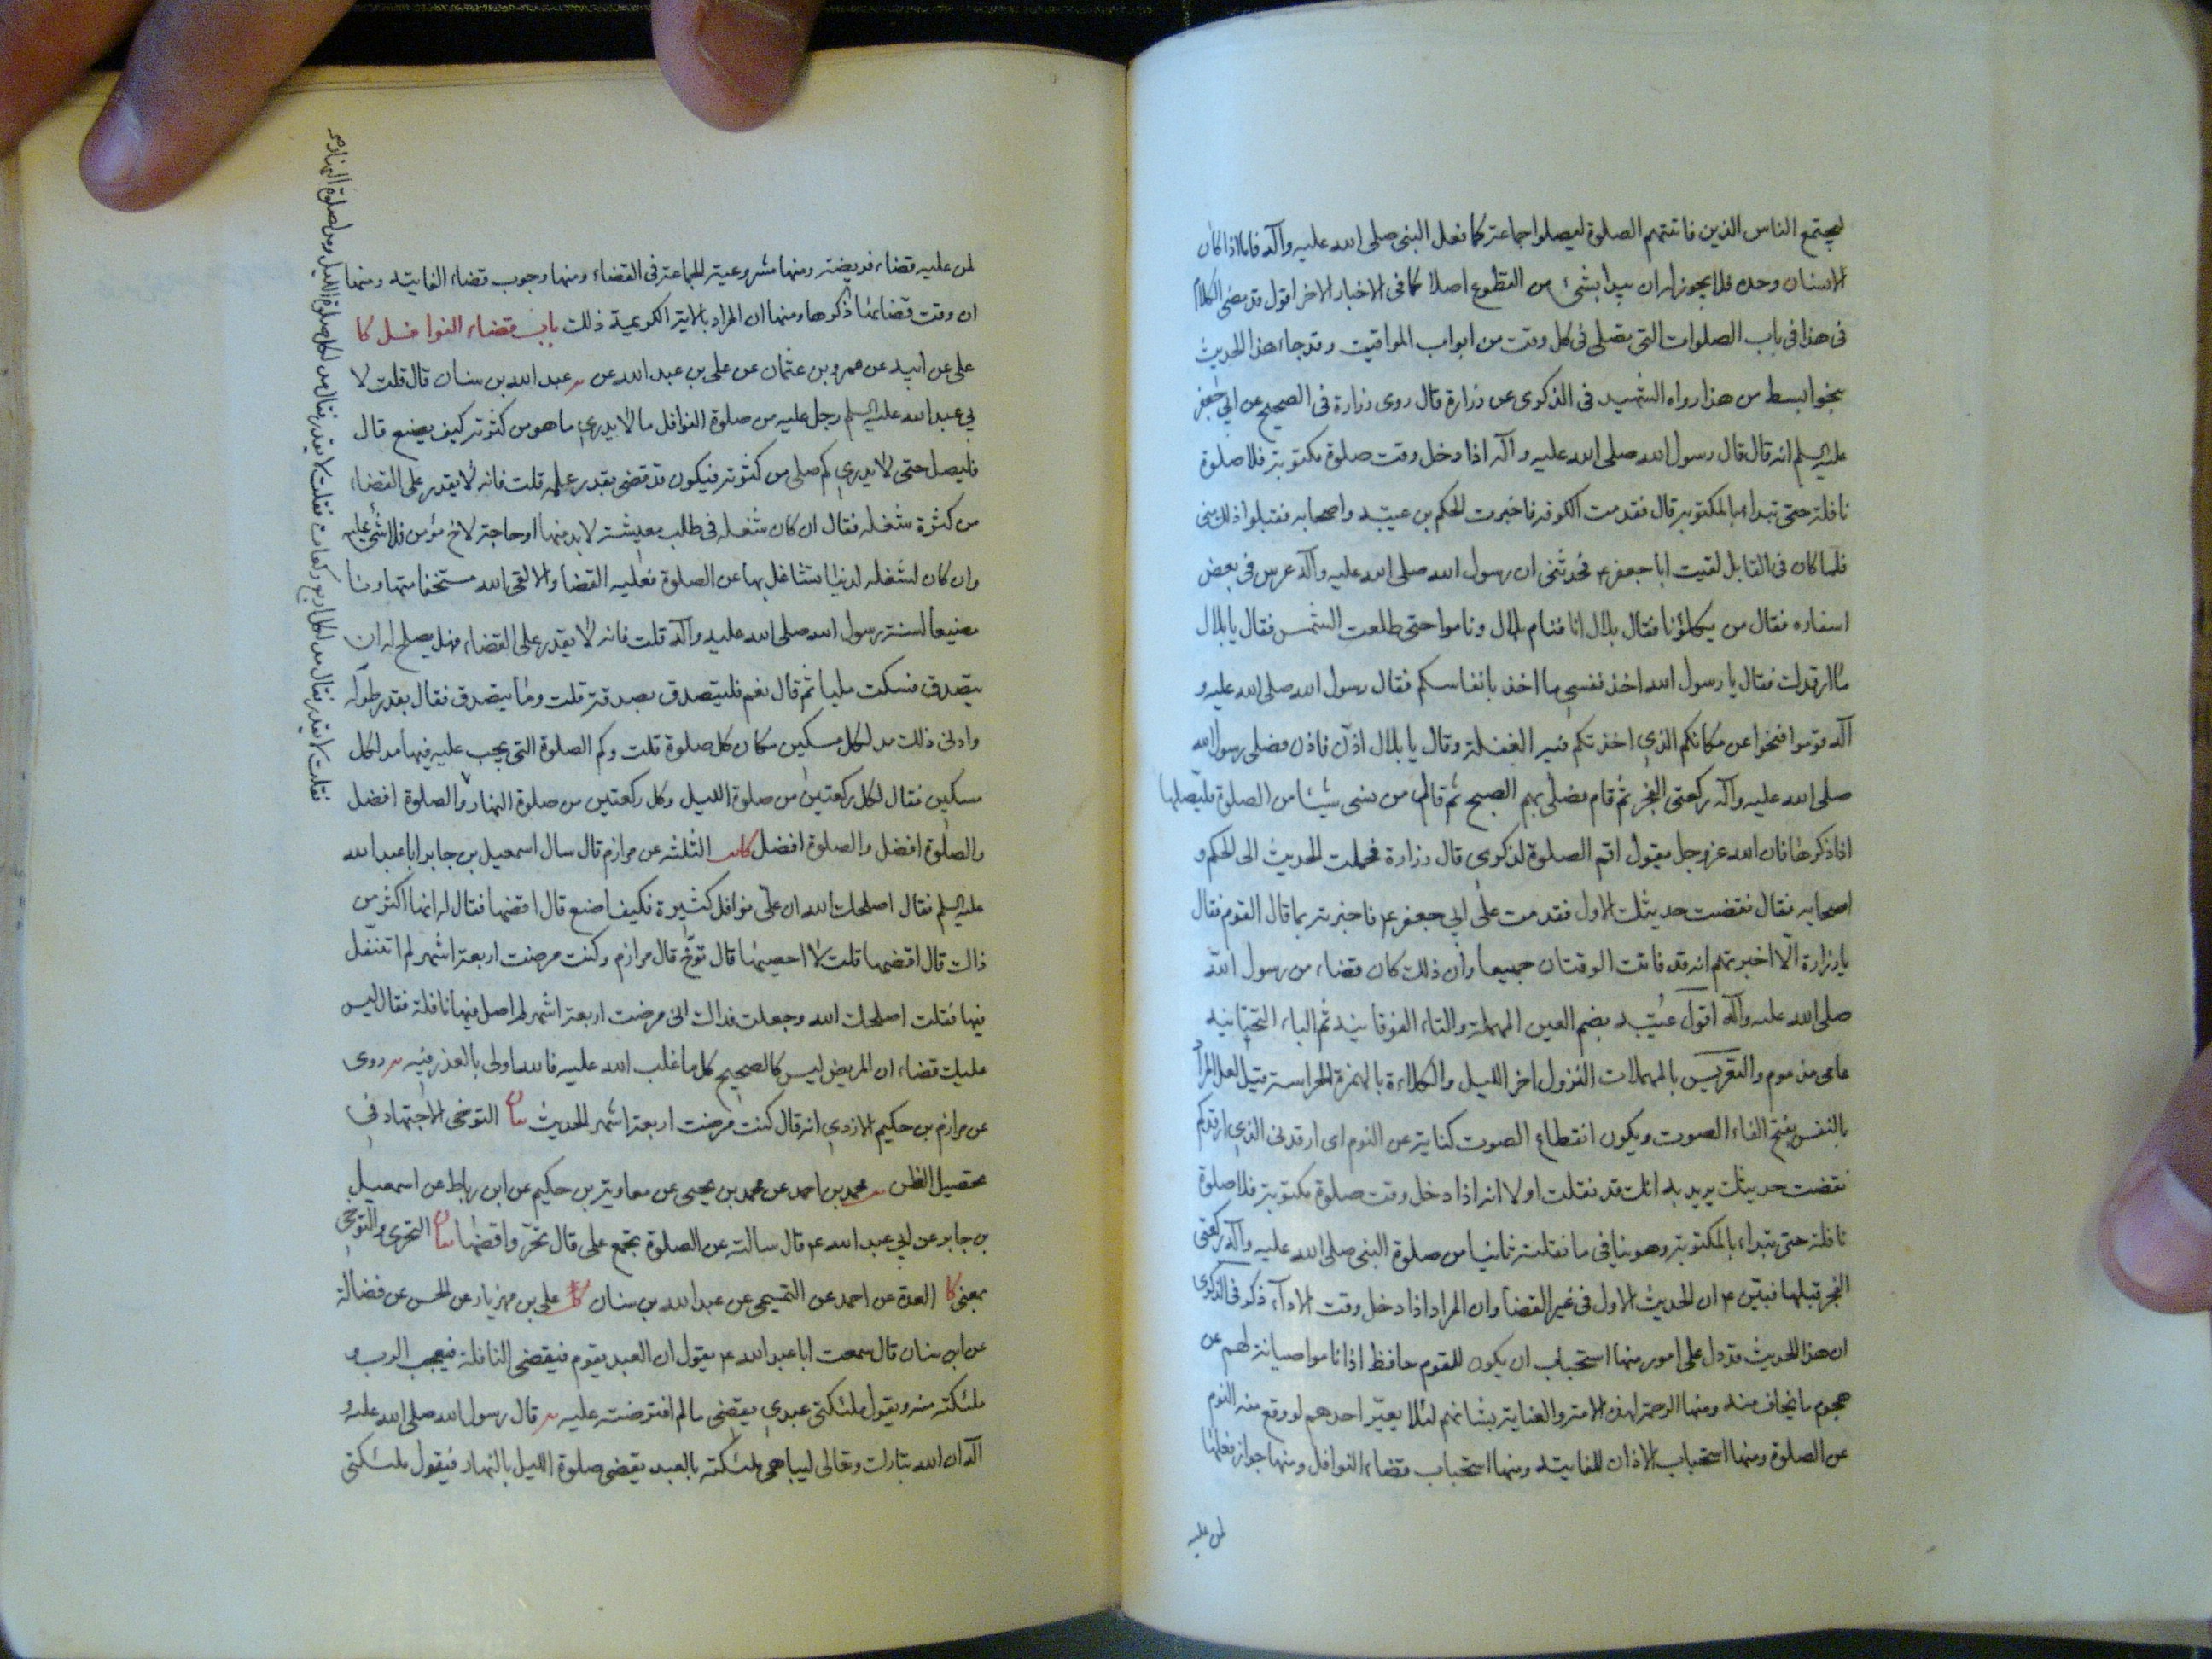 ليجتمع الناس الذين فاتتهم الصلوة ليصلوا جماعة كما فعل النبي صلى الله عليه وآله فاما اذا كان
الانسان وحده فلا يجوز له ان يبدا بشئ من التطوع اصلا كما في الاخبار الاخر اقول قد مضى الكلام
في هذا في باب الصلوات التي تصلى في كل وقت من ابواب المواقيت وقد جاء هذا الحديث
بنحو ابسط من هذا رواه الشهيد في الذكرى عن زرارة قال روى زرارة في الصحيح عن ابي جعفر
عليه السلم انه قال قال رسول الله صلى الله عليه وآله اذا دخل وقت صلوة مكتوبة فلا صلوة
نافلة حتى تبداء بالمكتوبة قال فقدمت الكوفة فاخبرت الحكم بن عتيبه واصحابه فقبلوا ذلك مني
فلما كان في القابل لقيت ابا جعفر ع فحدثني ان رسول الله صلى الله عليه وآله عرس في بعض
اسفاره فقال من يكلؤنا فقال بلال انا فنام بلال وناموا حتى طلعت الشمس فقال يا بلال
ما ارقدك فقال يا رسول الله اخذ نفسي ما اخذ بانفاسكم فقال رسول الله صلى الله عليه و
آله قوموا فتحوا عن مكانكم الذي اخذتكم فيه الغفلة وقال يا بلال اذن فاذن فصلى رسول الله
صلى الله عليه وآله ركعتي الفجر ثم قام فصلى بهم الصبح ثم قال من نسى شيئا من الصلوة فليصلها
اذا ذكرها فان الله عز وجل يقول اقم الصلوة لذكرى قال زرارة فحملت الحديث الى الحكم و
اصحابه فقال نقضت حديثك الاول فقدمت على ابي جعفر ع فاخبرته بما قال القوم فقال
يا زرارة الا اخبرتهم انه قد فاتت الوقتان جميعا وان ذلك كان قضاء من رسول الله
صلى الله عليه وآله اقول عتيبه بضم العين المهملة والتاء الفوقانية ثم الياء التحتانية
عامى مذموم والتعريس بالمهملات النزول اخر الليل والكلاءة بالهمزة الحراسة قيل لعل المراد
بالنفس بفتح الفاء الصوت ويكون انقطاع الصوت كناية عن النوم اى ارقدني الذى ارقدكم
نقضت حديثك يريد به انك قد نقلت اولا انه اذا دخل وقت صلوة مكتوبة فلا صلوة
نافلة حتى تبداء بالمكتوبة وهو ينافي ما نقلته ثانيا من صلوة النبي صلى الله عليه وآله ركعتي
الفجر قبلها فبين ع ان الحديث الاول في غير القضا وان المراد اذا دخل وقت الاداء ذكر في الذكرى
ان هذا الحديث قد دل على امور منها استحباب ان يكون للقوم حافظ اذا ناموا صيانة لهم عن
هجوم ما يخاف منه ومنها الرحمة لهذه الامة والعناية بشانهم لئلا يعير احدهم لو وقع منه النوم
عن الصلوة ومنها استحباب الاذان للفايتة ومنها استحباب قضاء النوافل ومنها جواز فعلها
لمن عليه
لمن عليه قضاء فريضة ومنها مشروعية الجماعة في القضاء ومنها وجوب قضاء الفايتة ومنها
ان وقت قضائها ذكرها ومنها ان المراد بالاية الكريمة ذلك باب قضاء النوافل كا
على عن ابيه عن عمرو بن عثمان عن على بن عبد الله عن عبد الله بن سنان قال قلت لا
بي عبد الله عليه السلم رجل عليه من صلوة النوافل ما لا يدرى ما هو من كثرته كيف يصنع قال
فليصل حتى لا يدرى كم صلى من كثرته فيكون قد قضى بقدر علمه قلت فانه لا يقدر على القضاء
من كثرة شغله فقال ان كان شغله في طلب معيشة لا بد منها او حاجة لاخ مؤمن فلا شئ عليه
وان كان لشغله لدنيا تشاغل بها عن الصلوة فعليه القضا والا لقى الله مستخفا متهاونا
مضيعا لسنة رسول الله صلى الله عليه وآله قلت فانه لا يقدر على القضاء فهل يصلح له ان
يتصدق فسكت مليا ثم قال نعم فليتصدق بصدقة قلت وما يتصدق فقال بقدر طوله
وادنى ذلك مد لكل مسكين مكان كل صلوة قلت وكم الصلوة التي يجب عليه فيها مد لكل
مسكين فقال لكل ركعتين من صلوة الليل وكل ركعتين من صلوة النهار والصلوة افضل
والصلوة افضل والصلوة افضل كا الثلثه عن مرازم قال سال اسمعيل بن جابر ابا عبد الله
عليه السلم فقال اصلحك الله ان على نوافل كثيرة فكيف اصنع قال اقضها فقال له انها اكثر من
ذلك قال اقضها قلت لا احصيها قال توخ قال مرازم وكنت مرضت اربعة اشهر لم اتنفل
فيها فقلت اصلحك الله وجعلت فداك اني مرضت اربعة اشهر لم اصل فيها نافلة فقال ليس
عليك قضاء ان المريض ليس كالصحيح كل ما غلب الله عليه فالله اولى بالعذر فيه روى
عن مرازم بن حكيم الازدى انه قال كنت مرضت اربعة اشهر الحديث بيان التوخى الاجتهاد في
تحصيل الظن محمد بن احمد عن محمد بن يحيى عن معاوية بن حكيم عن ابن رباط عن اسمعيل
بن جابر عن ابي عبد الله ع قال سالته عن الصلوة تجتمع على قال تحر واقضها بيان التحرى والتوخى
بمعنى كا العدة عن احمد عن التميمى عن عبد الله بن سنان كا على بن مهزيار عن الحسن عن فضالة
عن ابن سنان قال سمعت ابا عبد الله ع يقول ان العبد يقوم فيقضى النافلة فيعجب الرب و
ملئكته منه ويقول ملئكتي عبدي يقضى ما لم افترضه عليه قال رسول الله صلى الله عليه و
آله ان الله تبارك وتعالى ليباهى ملئكته بالعبد يقضى صلوة الليل بالنهار فيقول ملئكتي
فقلت لا يقدر فقال مد لكل اربع ركعات فقلت لا يقدر فقال مد لكل صلوة الليل ومد لصلوة النهار